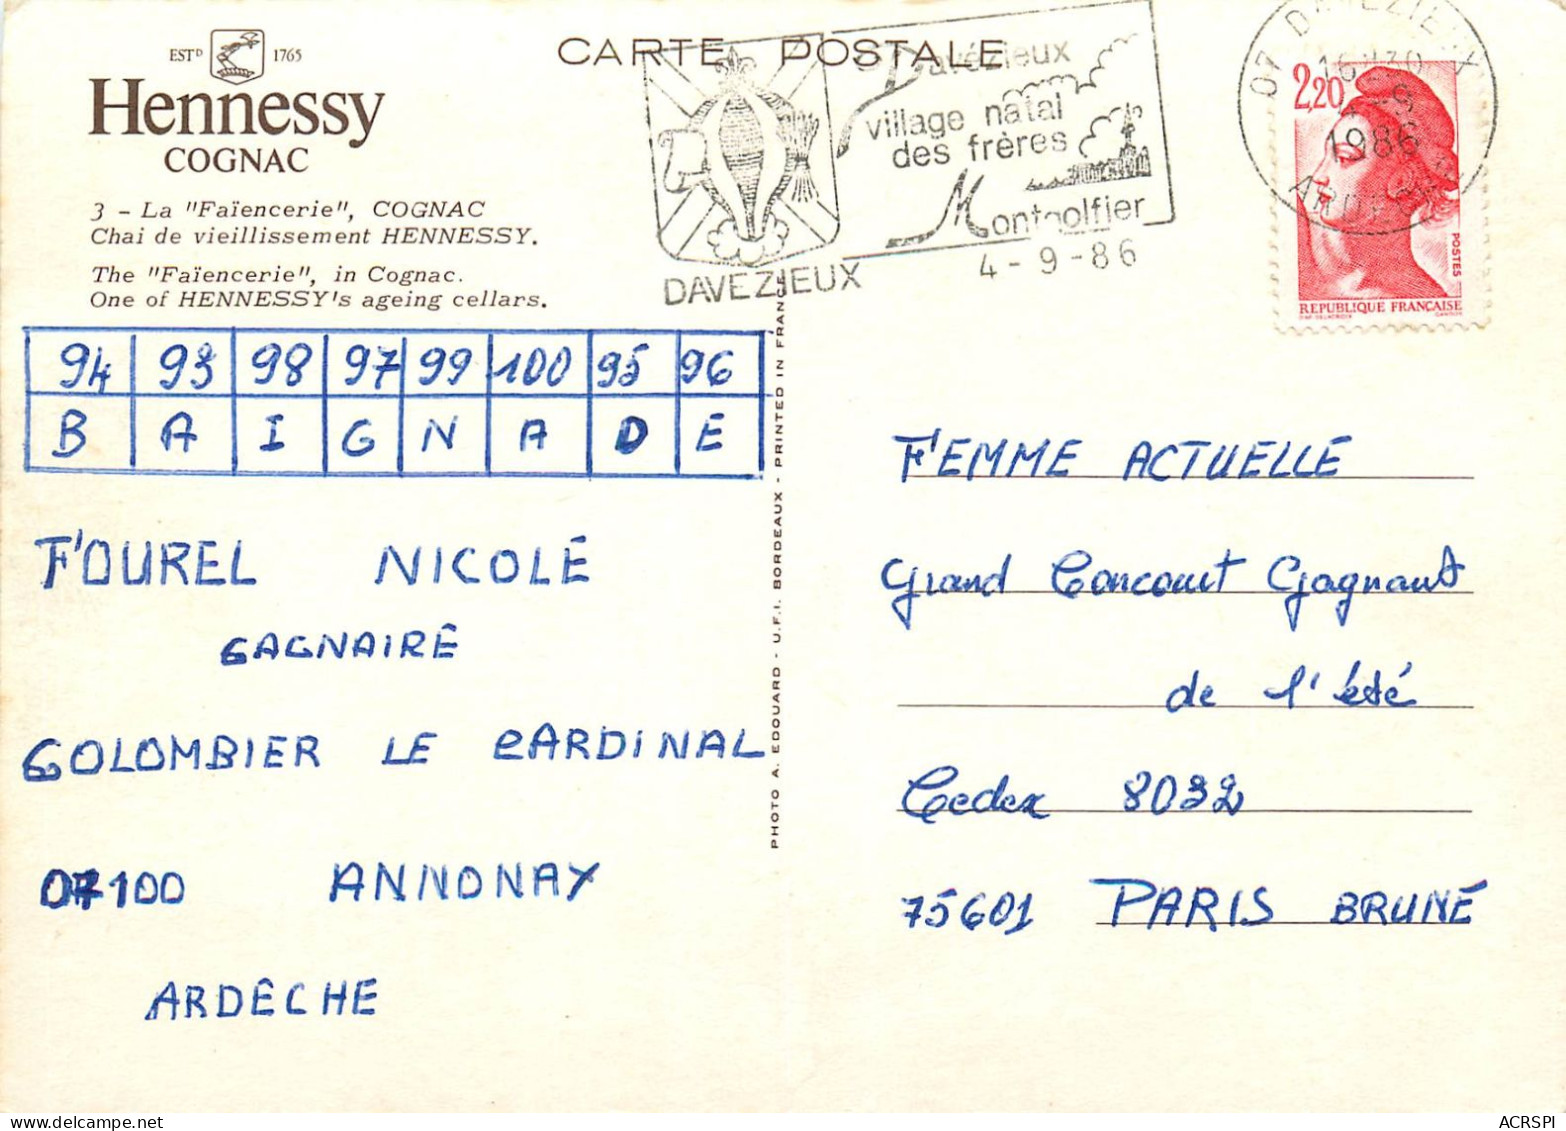 ESTD 1765
Hennessy
COGNAC
3 - La "Faïencerie", COGNAC
Chai de vieillissement HENNESSY.
The "Faïencerie", in Cognac.
One of HENNESSY's ageing cellars.
CARTE POSTALE
Davézieux
village natal
des frères
Montgolfier
DAVEZIEUX
4-9-86
07 DAVEZIEUX
16H30
4-9
1986
ARDECHE
2,20
POSTES
REPUBLIQUE FRANÇAISE
94 93 98 97 99 100 95 96
B A I G N A D E
FOUREL NICOLE
GAGNAIRE
COLOMBIER LE CARDINAL
07100 ANNONAY
ARDÈCHE
PHOTO A. EDOUARD - U.F.I. BORDEAUX - PRINTED IN FRANCE
FEMME ACTUELLE
Grand Concourt Gagnant
de l'été
Cedex 8032
75601 PARIS BRUNE
ACRSPI